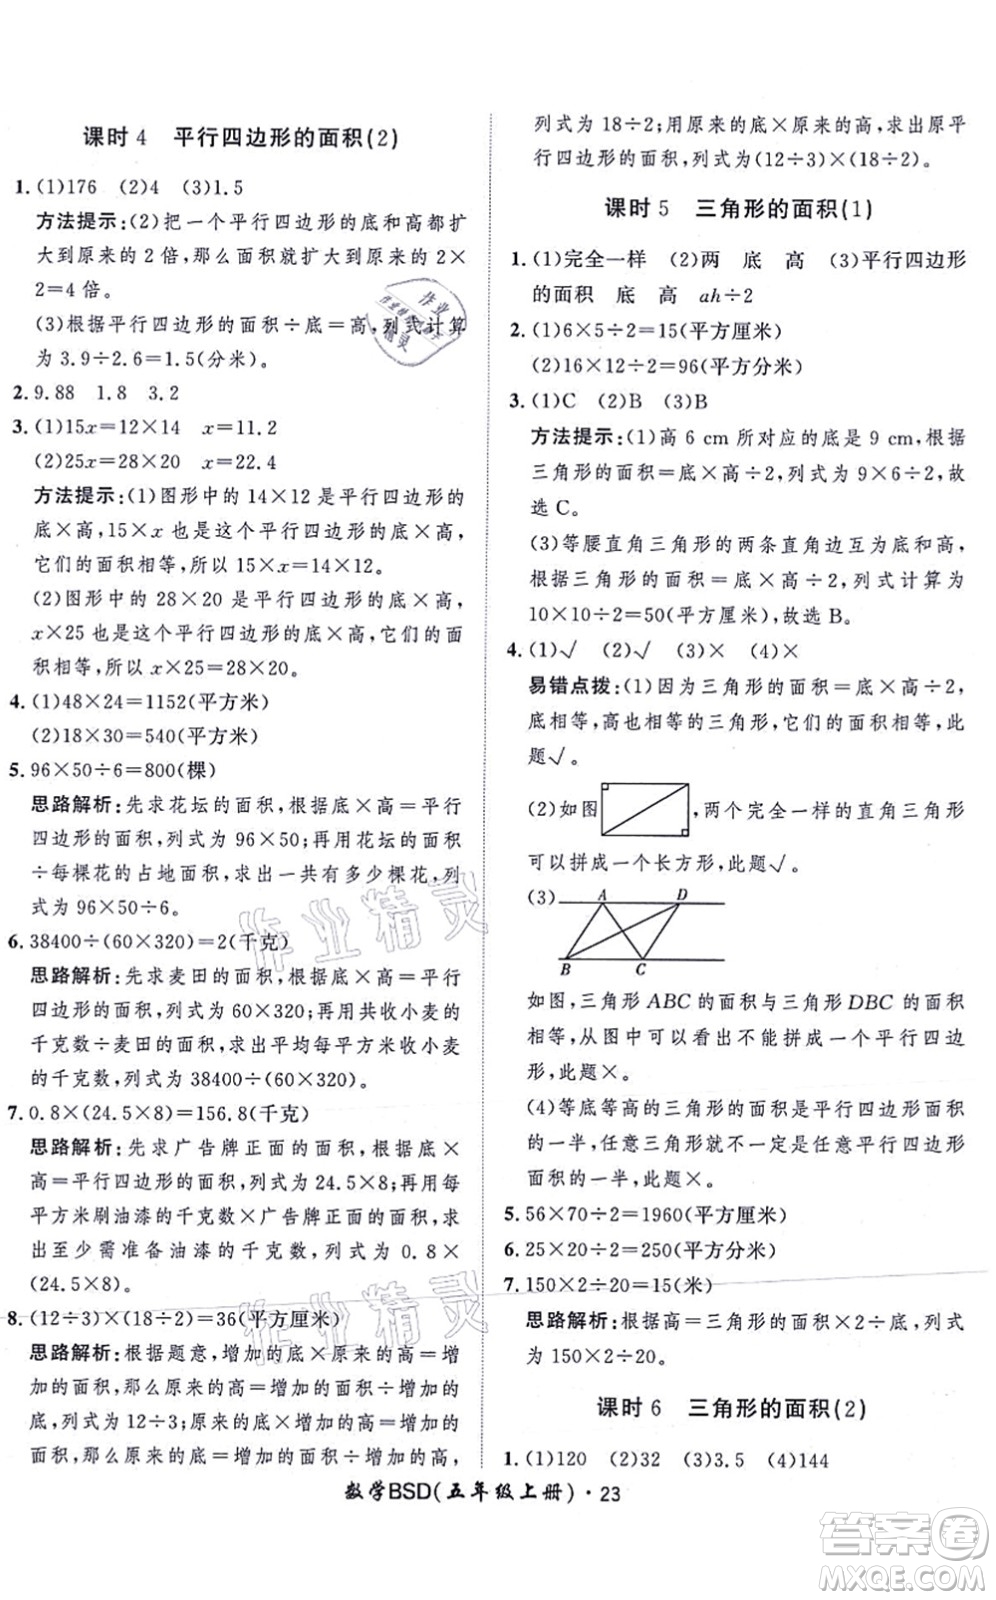 课时 4　平行四边形的面积(2)
1. (1)176　(2)4　(3)1.5
方法提示:(2)把一个平行四边形的底和高都扩
大到原来的 2 倍,那么面积就扩大到原来的 2×
2=4 倍。
(3)根据平行四边形的面积÷底=高,列式计算
为 3.9÷2.6=1.5(分米)。
2. 9.88　1.8　3.2
3. (1)15x=12×14　x=11.2
(2)25x=28×20　x=22.4
方法提示:(1)图形中的 14×12 是平行四边形的
底×高,15×x 也是这个平行四边形的底×高,
它们的面积相等,所以 15×x=14×12。
(2)图形中的 28×20 是平行四边形的底×高,
x×25 也是这个平行四边形的底×高,它们的面
积相等,所以 x×25=28×20。
4. (1)48×24=1152(平方米)
(2)18×30=540(平方米)
5. 96×50÷6=800(棵)
思路解析:先求花坛的面积,根据底×高=平行
四边形的面积,列式为 96×50;再用花坛的面积
÷每棵花的占地面积=一共有多少棵花,列式
为 96×50÷6。
6. 38400÷(60×320)=2(千克)
思路解析:先求麦田的面积,根据底×高=平行
四边形的面积,列式为 60×320;再用共收小麦的
千克数÷麦田的面积,求出平均每平方米收小麦
的千克数,列式为 38400÷(60×320)。
7. 0.8×(24.5×8)=156.8(千克)
思路解析:先求广告牌正面的面积,根据底×
高=平行四边形的面积,列式为 24.5×8;再用每
平方米刷油漆的千克数×广告牌正面的面积,求
出至少需准备油漆的千克数,列式为 0.8×
(24.5×8)。
8. (12÷3)×(18÷2)=36(平方厘米)
思路解析:根据题意,增加的底×原来的高=增
加的面积,那么原来的高=增加的面积÷增加的
底,列式为 12÷3;原来的底×增加的高=增加的
面积,那么原来的底=增加的面积÷增加的高,
列式为 18÷2;用原来的底×原来的高,求出原平
行四边形的面积,列式为(12÷3)×(18÷2)。
课时 5　三角形的面积(1)
1. (1)完全一样　(2)两　底　高　(3)平行四边形
的面积　底　高　ah÷2
2. (1)6×5÷2=15(平方厘米)
(2)16×12÷2=96(平方分米)
3. (1)C　(2)B　(3)B
方法提示:(1)高 6 cm 所对应的底是 9 cm,根据
三角形的面积=底×高÷2,列式为 9×6÷2,故
选 C。
(3)等腰直角三角形的两条直角边互为底和高,
根据三角形的面积=底×高÷2,列式计算为
10×10÷2=50(平方厘米),故选 B。
4. (1)√　(2)√　(3)×　(4)×
易错点拨:(1)因为三角形的面积=底×高÷2,
底相等,高也相等的三角形,它们的面积相等,此
题√。
(2)如图 ,两个完全一样的直角三角形
可以拼成一个长方形,此题√。
(3) A D
B C
如图,三角形 ABC 的面积与三角形 DBC 的面积
相等,从图中可以看出不能拼成一个平行四边
形,此题×。
(4)等底等高的三角形面积是平行四边形面积
的一半,任意三角形不一定是任意平行四边形
面积的一半,此题×。
5. 56×70÷2=1960(平方厘米)
6. 25×20÷2=250(平方分米)
7. 150×2÷20=15(米)
思路解析:根据三角形的面积×2÷底=高,列式
为 150×2÷20。
课时 6　三角形的面积(2)
1. (1)120　(2)32　(3)3.5　(4)144
数学BSD(五年级上册)·23
作业精灵
作业精灵
作业精灵
答案圈
MXQE.COM